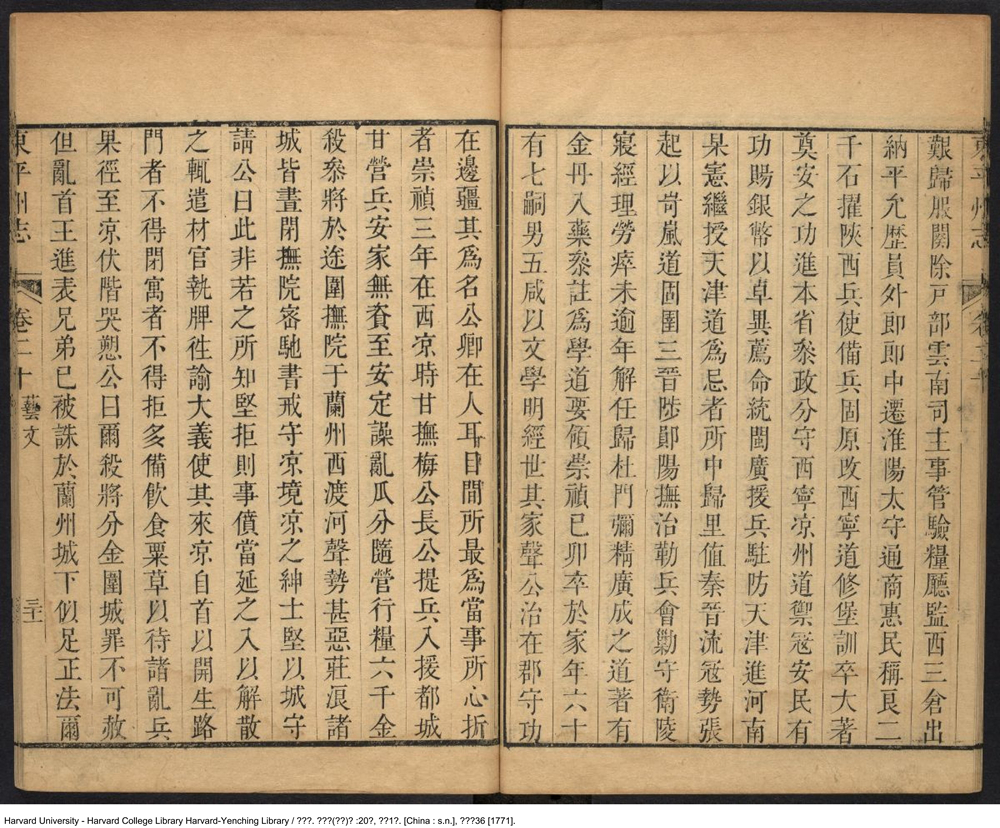 東平州志
卷二十
艱歸服闋除戸部雲南司主事管驗糧廳監西三倉出
納平允歷員外郎郎中遷淮陽太守通商惠民稱良二
千石擢陝西兵使備兵固原改西寧道修堡訓卒大著
奠安之功進本省叅政分守西寧凉州道禦冦安民有
功賜銀幣以卓異薦命統閩廣援兵駐防天津進河南
臬憲繼授天津道爲忌者所中歸里值秦晉流冦勢張
起以岢嵐道固圉三晉陟鄖陽撫治勒兵會勦守衛陵
寢經理勞瘁未逾年解任歸杜門彌精廣成之道著有
金丹入藥叅註爲學道要領崇禎巳卯卒於家年六十
有七嗣男五咸以文學明經世其家聲公治在郡守功
在邊疆其爲名公卿在人耳目間所最爲當事所心折
者崇禎三年在西凉時甘撫梅公長公提兵入援都城
甘營兵安家無資至安定譟亂瓜分隨營行糧六千金
殺叅將於途圍撫院于蘭州西渡河聲勢甚惡莊浪諸
城皆晝閉撫院密馳書戒守凉境凉之紳士堅以城守
請公曰此非若之所知堅拒則事僨當延之入以解散
之輒遣材官執牌徃諭大義使其來凉自首以開生路
門者不得閉寓者不得拒多備飲食粟草以待諸亂兵
果徑至凉伏階哭愬公曰爾殺將分金圍城罪不可赦
但亂首王進表兄弟巳被誅於蘭州城下似足正法爾
東平州志
卷二十
藝文
三十
Harvard University - Harvard College Library Harvard-Yenching Library / ???. ???(??)? :20?, ??1?. [China : s.n.], ???36 [1771].